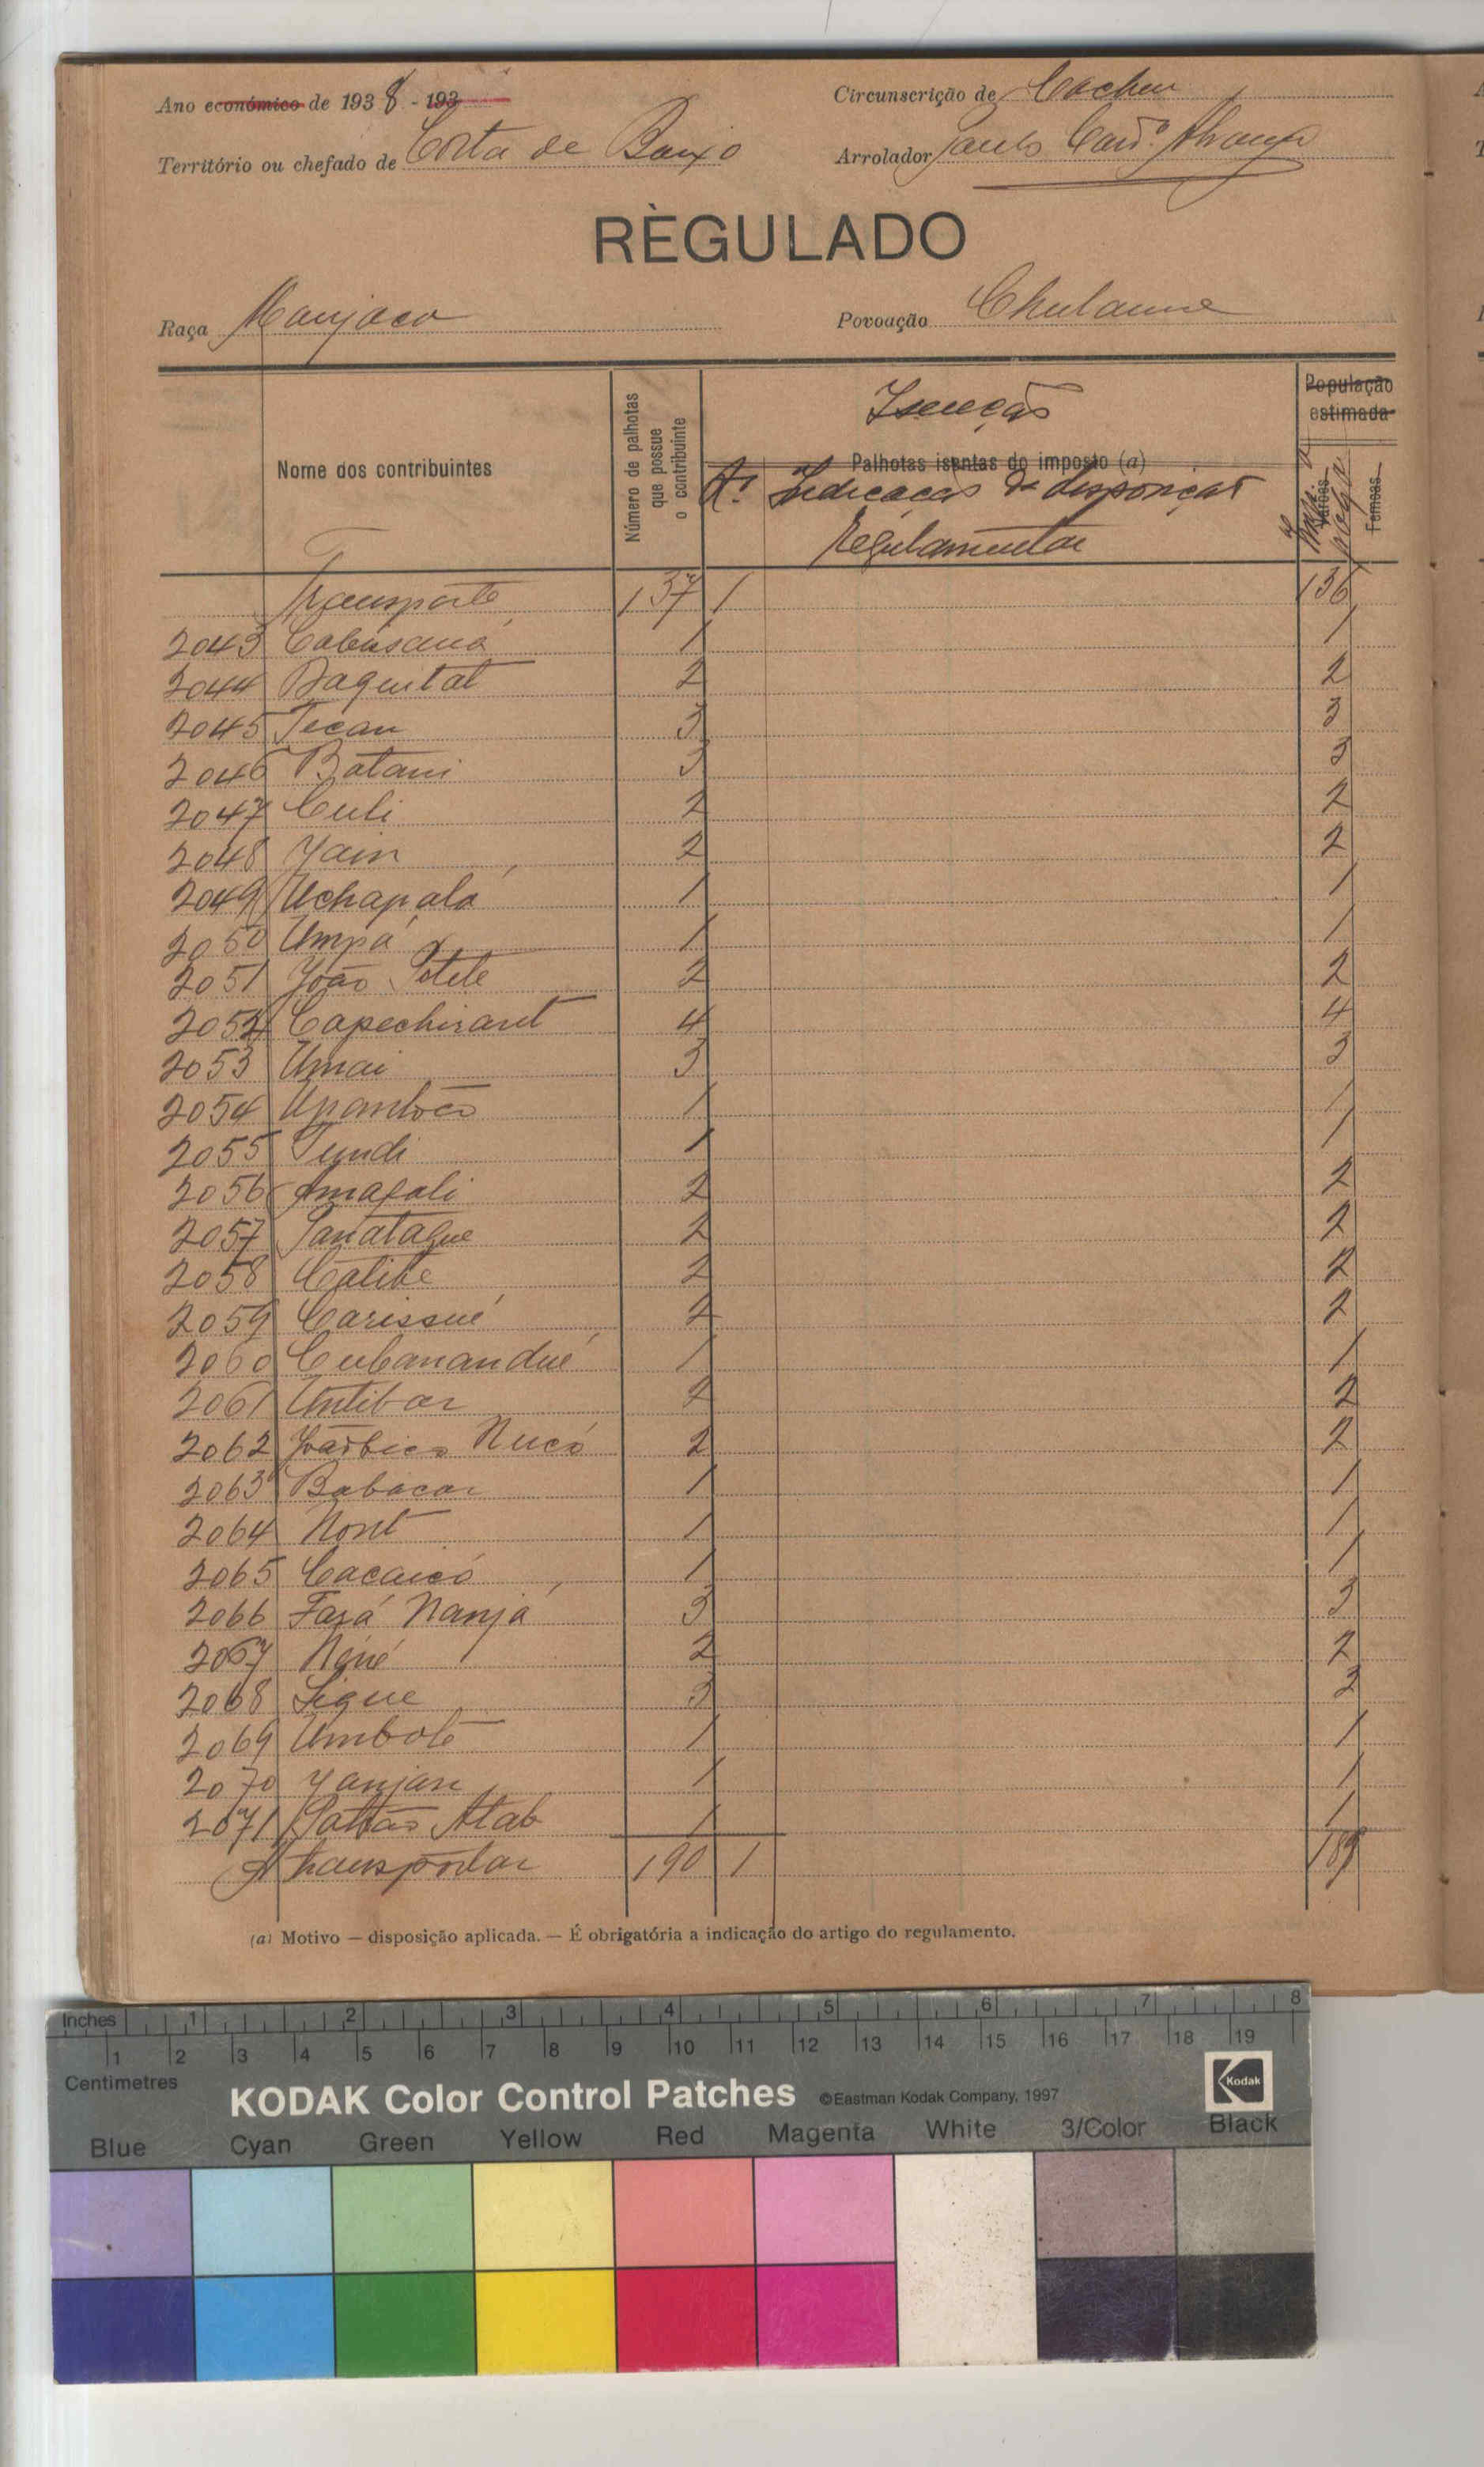 Ano económico de 1938 - 193
Circunscrição de Cacheu
Território ou chefado de Costa de Baixo
Arrolador Paulo Card.º
RÈGULADO
Raça Manjaco
Povoação Chulame
Nome dos contribuintes
Número de palhotas que possue o contribuinte
Isenção
Palhotas isentas do imposto (a)
Indicação da disposição
Regulamentar
População estimada
Varões
Femeas
Transporte 137 1 136
2043 Cabusaná 1 1
2044 Baquitat 2 2
2045 Tecan 3 3
2046 Batani 3 3
2047 Culi 2 2
2048 Yain 2 2
2049 Uchapalá 1 1
2050 Umpá 1 1
2051 João Petete 2 2
2052 Capechirant 4 4
2053 Umai 3 3
2054 Upantocó 1 1
2055 Tundi 1 1
2056 Amafali 2 2
2057 2 2
2058 Catibe 2 2
2059 Carissué 2 2
2060 Cubanandué 1 1
2061 Untibar 2 2
2062 Nucó 2 2
2063 Babacar 1 1
2064 Nont 1 1
2065 Cacaicó 1 1
2066 Fará Nanjá 3 3
2067 Néné 2 2
2068 Ligue 3 3
2069 Umboté 1 1
2070 Yanjan 1 1
2071 Atab 1 1
A transportar 190 1 189
(a) Motivo — disposição aplicada. — É obrigatória a indicação do artigo do regulamento.
Inches 1 2 3 4 5 6 7 8
1 2 3 4 5 6 7 8 9 10 11 12 13 14 15 16 17 18 19
Centimetres
KODAK Color Control Patches ©Eastman Kodak Company, 1997 Kodak
Blue Cyan Green Yellow Red Magenta White 3/Color Black